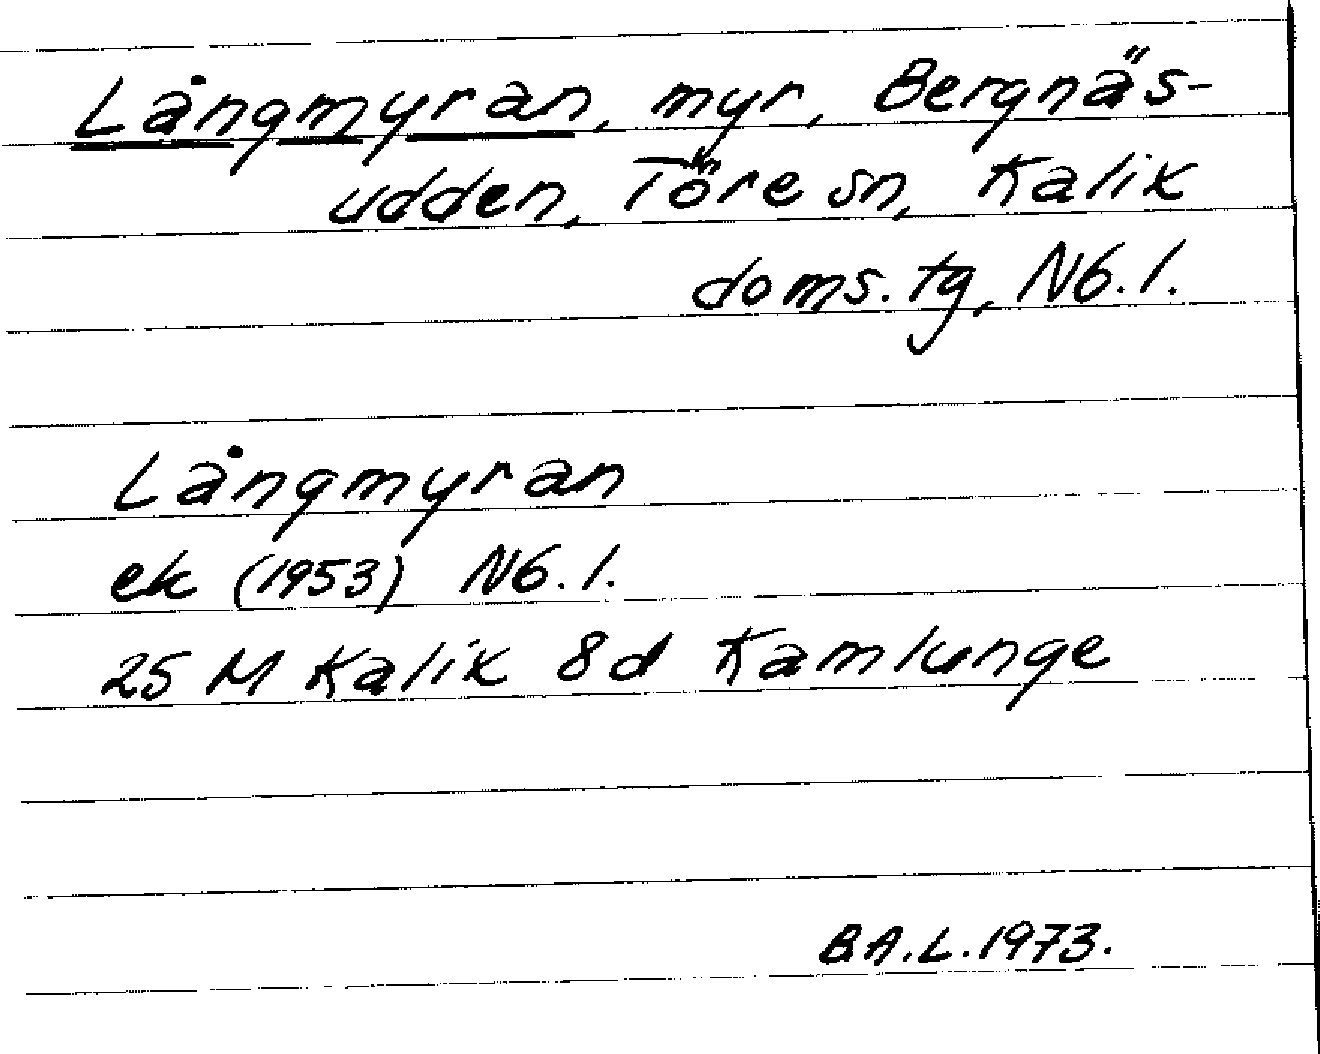 Långmyran, myr, Bergnäs-
udden, Töre sn, Kalix
doms. tg, Nb. l.
Långmyran
ek (1953) Nb. l.
25 M Kalix 8d Kamlunge
B.A.L. 1973.